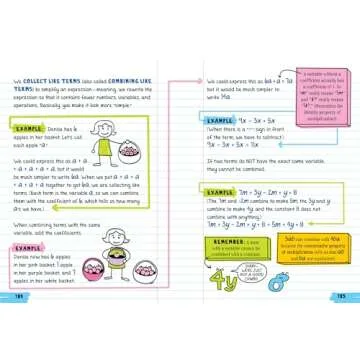 We COLLECT LIKE TERMS (also called COMBINING LIKE
TERMS) to simplify an expression - meaning, we rewrite the
expression so that it contains fewer numbers, variables, and
operations. Basically, you make it look more "simple."
EXAMPLE: Denise has 6
apples in her basket. Let's call
each apple "a."
We could express this as a + a
+ a + a + a + a, but it would
be much simpler to write 6a. When we put a + a + a
+ a + a + a together to get 6a, we are collecting like
terms. (Each term is the variable a, so we can combine
them with the coefficient of 6, which tells us how many
a's we have.)
When combining terms with the same
variable, add the coefficients.
EXAMPLE:
Denise now has 6 apples
in her pink basket, 1 apple
in her purple basket, and 7
apples in her white basket.
184
We could express this as 6a + a + 7a,
but it would be much simpler to
write 14a.
A variable without a
coefficient actually has
a coefficient of 1. So
EXAMPLE: 9x - 3x + 5x
(When there is a "-" sign in front
of the term, we have to subtract.)
9x - 3x + 5x = 11x
If two terms do NOT have the exact same variable,
they cannot be combined.
EXAMPLE: 7m + 3y - 2m + y + 8
(The 7m and -2m combine to make 5m, the 3y and y
combine to make 4y, and the constant 8 does not
combine with anything.)
7m + 3y - 2m + y + 8 = 5m + 4y + 8
REMEMBER: A term
with a variable cannot be
combined with a constant.
4y
8
185